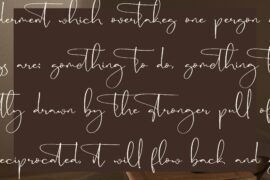 derment which overtakes one person
gs are: something to do, something t
tly drawn by the stronger pull of
eciprocated, it will flow back and